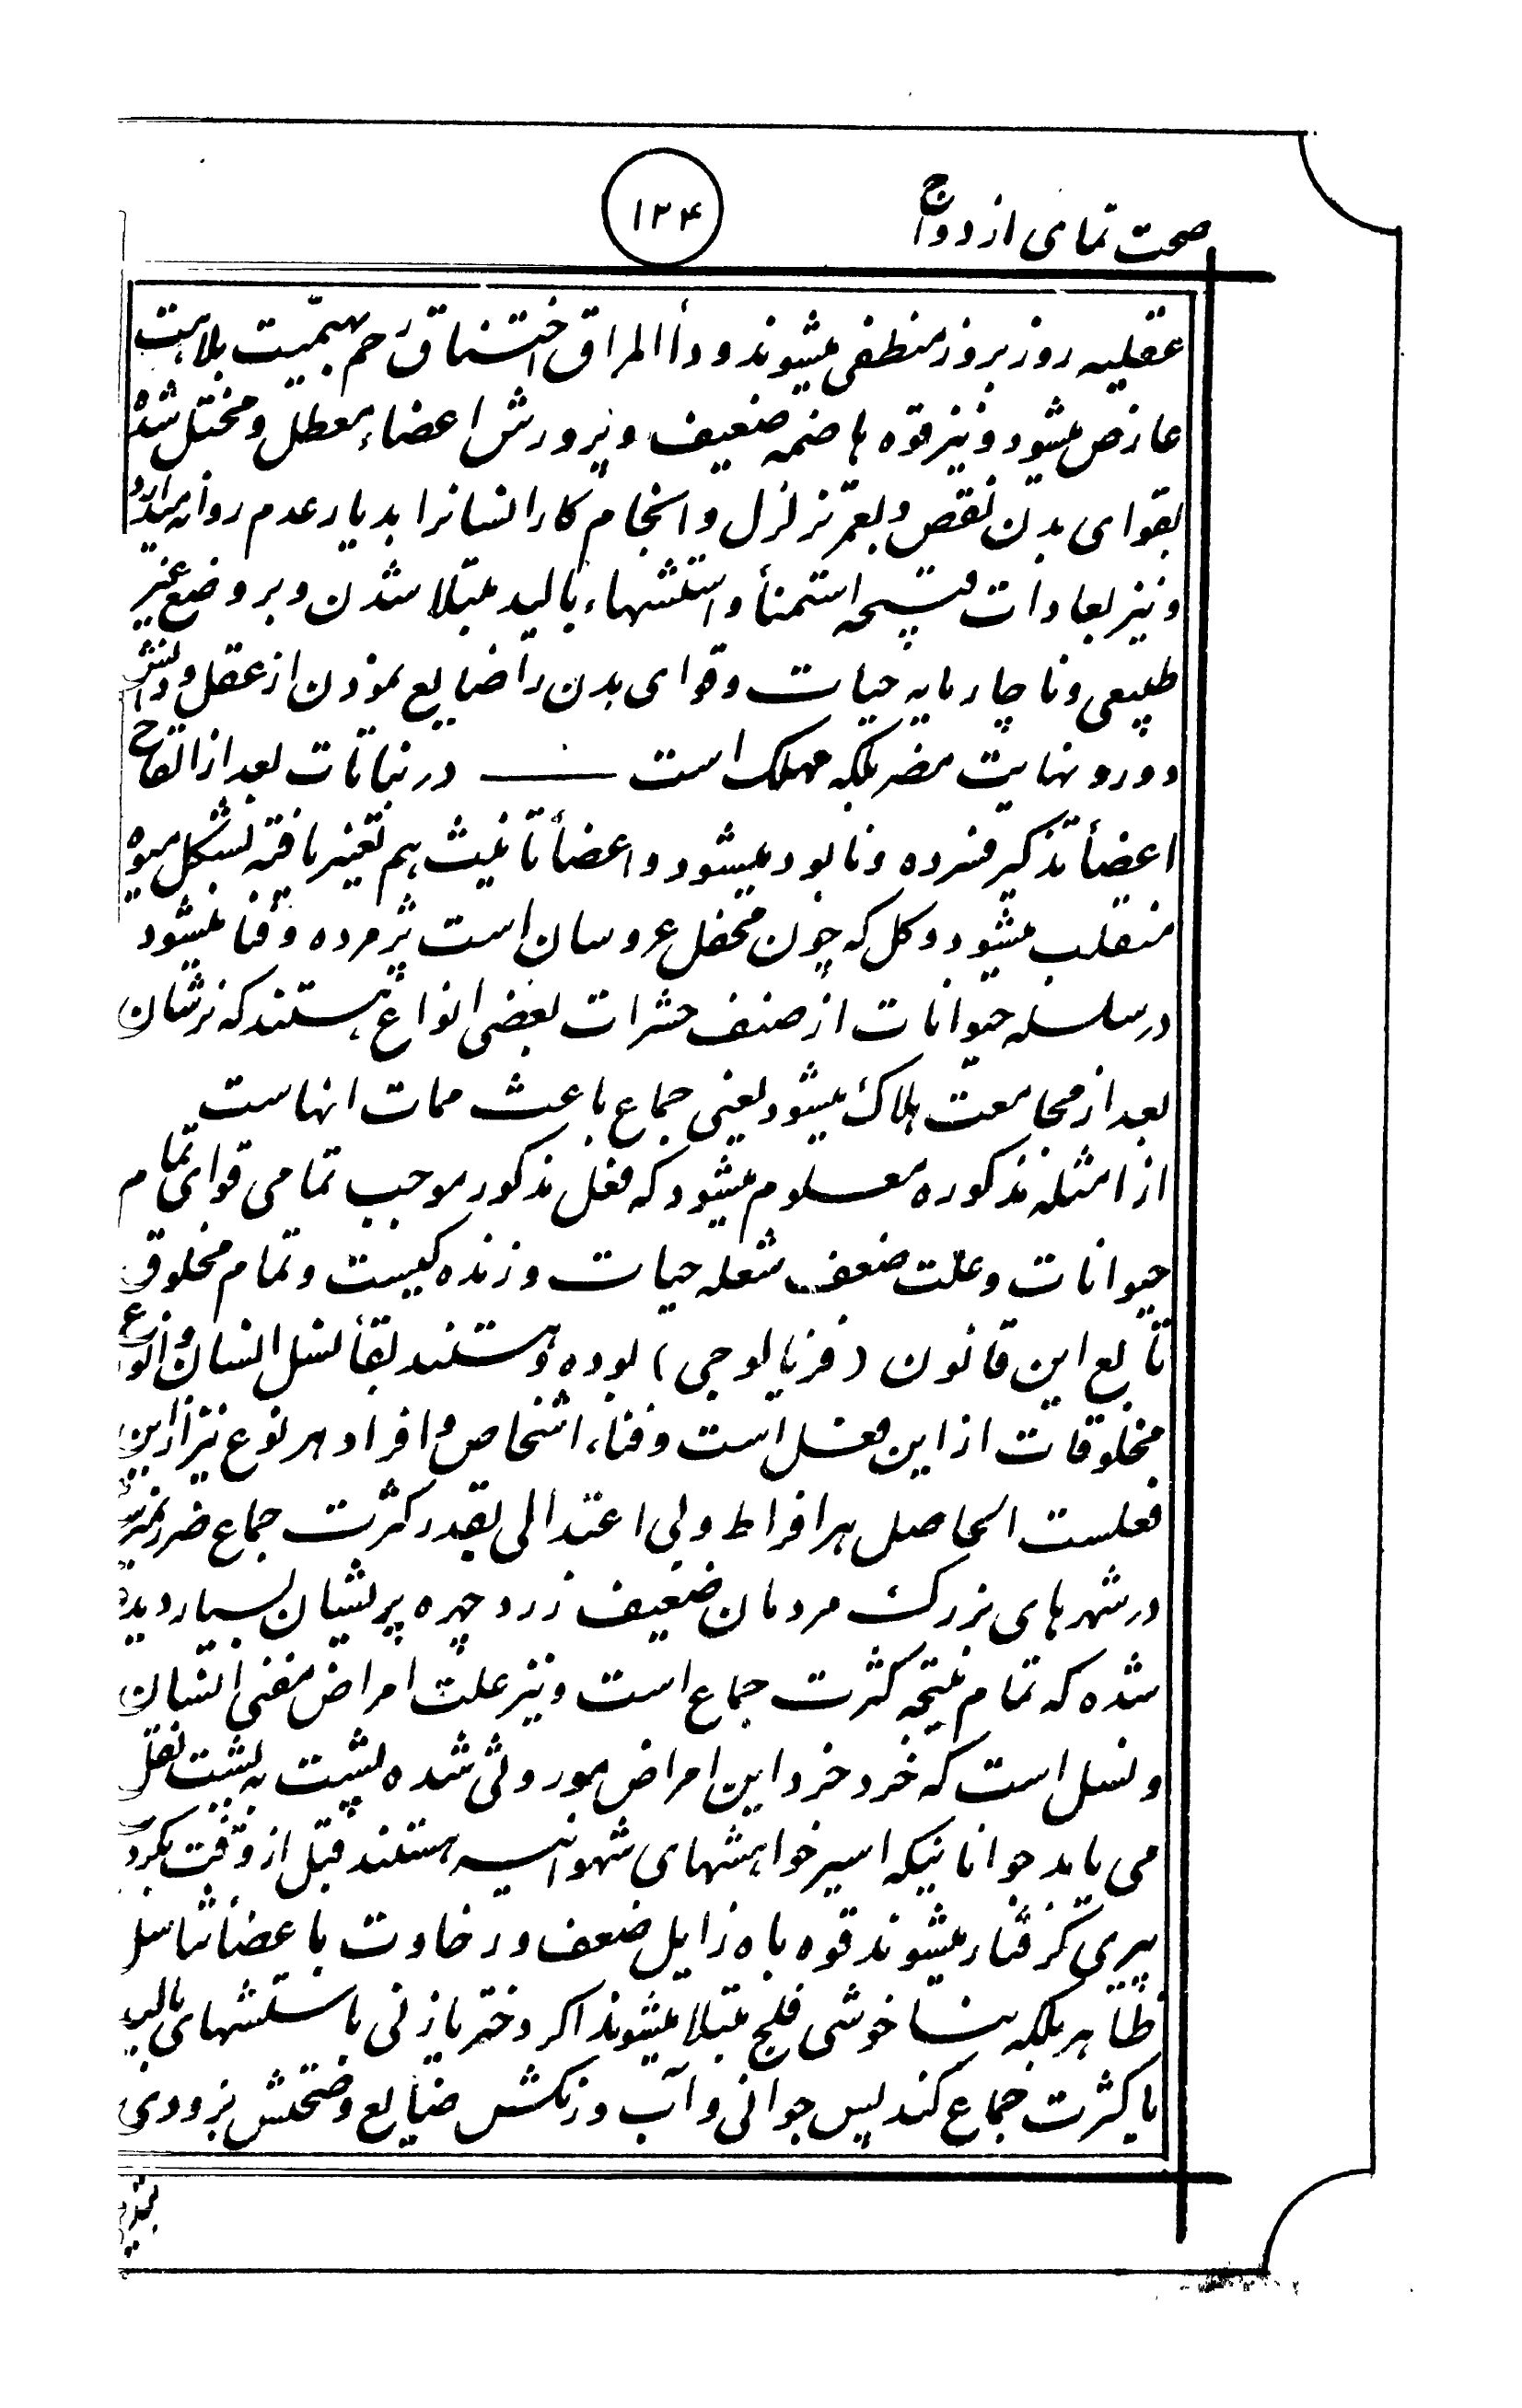 صحت تمامی ازدواج
۱۳۴
عقلیه روز بروز منطفی میشوند و دأ المراق اختناق رحم بهمیت بلاهت
عارض میشود و نیز قوه هاضمه ضعیف و پرورش اعضاء معطل و مختل شده
بقوای بدن نقص و بعمر تزلزل و انجام کار انسانرا بدیار عدم روانه میدارد
و نیز بعادات قبیحه استمنأ و استشهاء بالید مبتلا شدن و بر وضع غیر
طبیعی و ناچار مایه حیات و قوای بدن را ضایع نمودن از عقل و دانش
دور و نهایت مضر بلکه مهلک است ـــــ در نباتات بعد از القاح
اعضأ تذکیر فسرده و نابود میشود و اعضأ تانیث هم تغیر یافته بشکل میوه
منقلب میشود و کل که چون محفل عروسان است پژمرده و فنا میشود
در سلسله حیوانات از صنف حشرات بعضی انواع هستند که نرشان
بعد از مجامعت هلاک میشود یعنی جماع باعث ممات انهاست
از امثله مذکوره معلوم میشود که فعل مذکور موجب تمامی قوای تمام
حیوانات و علت ضعف شعله حیات و زنده کیست و تمام مخلوق
تابع این قانون (فزیالوجی) بوده و هستند بقأ نسل انسان و انواع
مخلوقات از این فعل است و فناء اشخاص و افراد هر نوع نیز از این
فعلست الحاصل هر افراط و بی اعتدالی بقدر کثرت جماع ضرر نمیر
در شهرهای بزرک مردمان ضعیف زرد چهره پریشان بسیار دیده
شده که تمام نتیجه کثرت جماع است و نیز علت امراض مفنی انسان
و نسل است که خرد خرد این امراض موروثی شده پشت به پشت نقل
می یابد جوانانیکه اسیر خواهشهای شهوانیه هستند قبل از وقت بکرد
پیری کرفتار میشوند قوه باه زایل ضعف و رخاوت با عضأ تناسل
ظاهر بلکه بناخوشی فلج مبتلا میشوند اکر دختر یا زنی با ستشهای بالید
یا کثرت جماع کند پس جوانی و آب و رنکش ضایع و صحتش بزودی